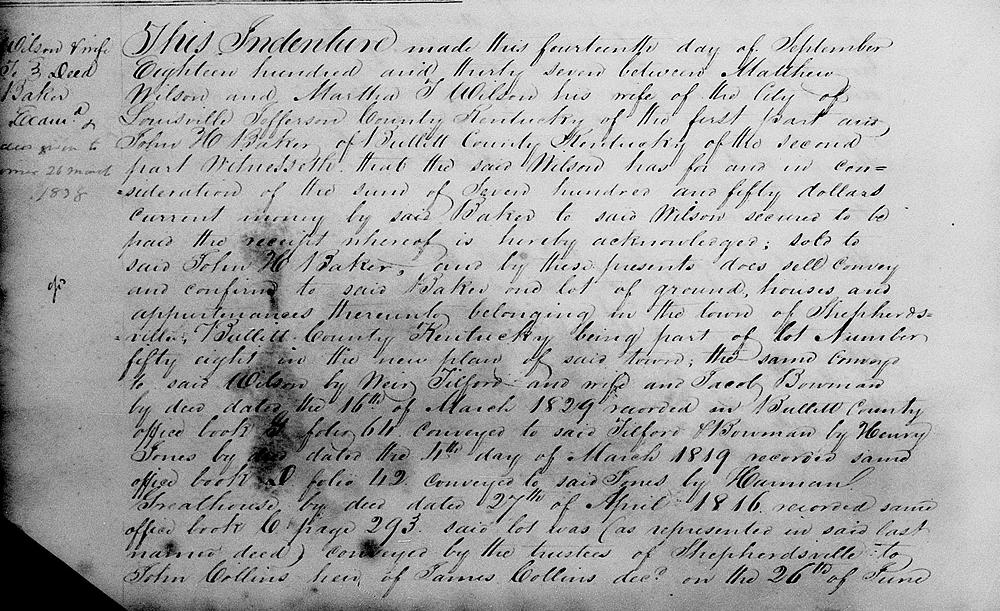 Wilson & wife
To } Deed
Baker
Exam.d &
given to
26 march
1838
This Indenture made this fourteenth day of September
Eighteen hundred and thirty seven between Matthew
Wilson and Martha T Wilson his wife of the City of
Louisville Jefferson County Kentucky of the first part and
John H Baker of Bullitt County Kentucky of the second
part Witnesseth that the said Wilson has for and in con=
sideration of the sum of Seven hundred and fifty dollars
current money by said Baker to said Wilson secured to be
paid the receipt whereof is hereby acknowledged; sold to
said John H Baker, and by these presents does sell convey
and confirm to said Baker one lot of ground, houses and
appurtenances thereunto belonging in the town of Shepherds=
ville, Bullitt County Kentucky being part of lot Number
fifty eight in the new plan of said town; the same conveyd
to said Wilson by Neir Tilford and wife and Jacob Bowman
by deed dated the 16th of March 1829 recorded in Bullitt County
office book folio 64 conveyed to said Tilford & Bowman by Henry
Jones by deed dated the 4th day of March 1819 recorded same
office book D folio 42 conveyed to said Jones by Harman
Greathouse by deed dated 27th of April 1816 recorded same
office book C page 293 said lot was (as represented in said last
named deed) conveyed by the trustees of Shepherdsville to
John Collins heir of James Collins decd on the 26th of June